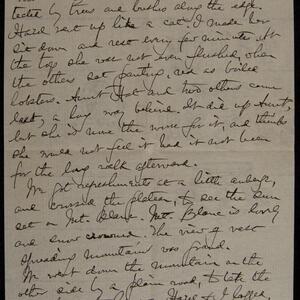 tected by trees and bushes along the edge.
Hazel went up like a cat. I made her
sit down and rest every few minutes. At
the top she was not even flushed, when
the others sat panting, red as boiled
lobsters. Aunt Hat and two others came
last, a long way behind. It did up Aunt,
but she is none the worse for it, and thinks
she would not feel it had it not been
for the long walk afterward.
We got refreshments at a little auberge,
and crossed the plateau, to see the sun
set on Mt. Blanc. Mt. Blanc is lovely
and snow crowned. The view of vast
spreading mountains was grand.
We went down the mountain on the
other side by a plain road, to take the
Hazel & I